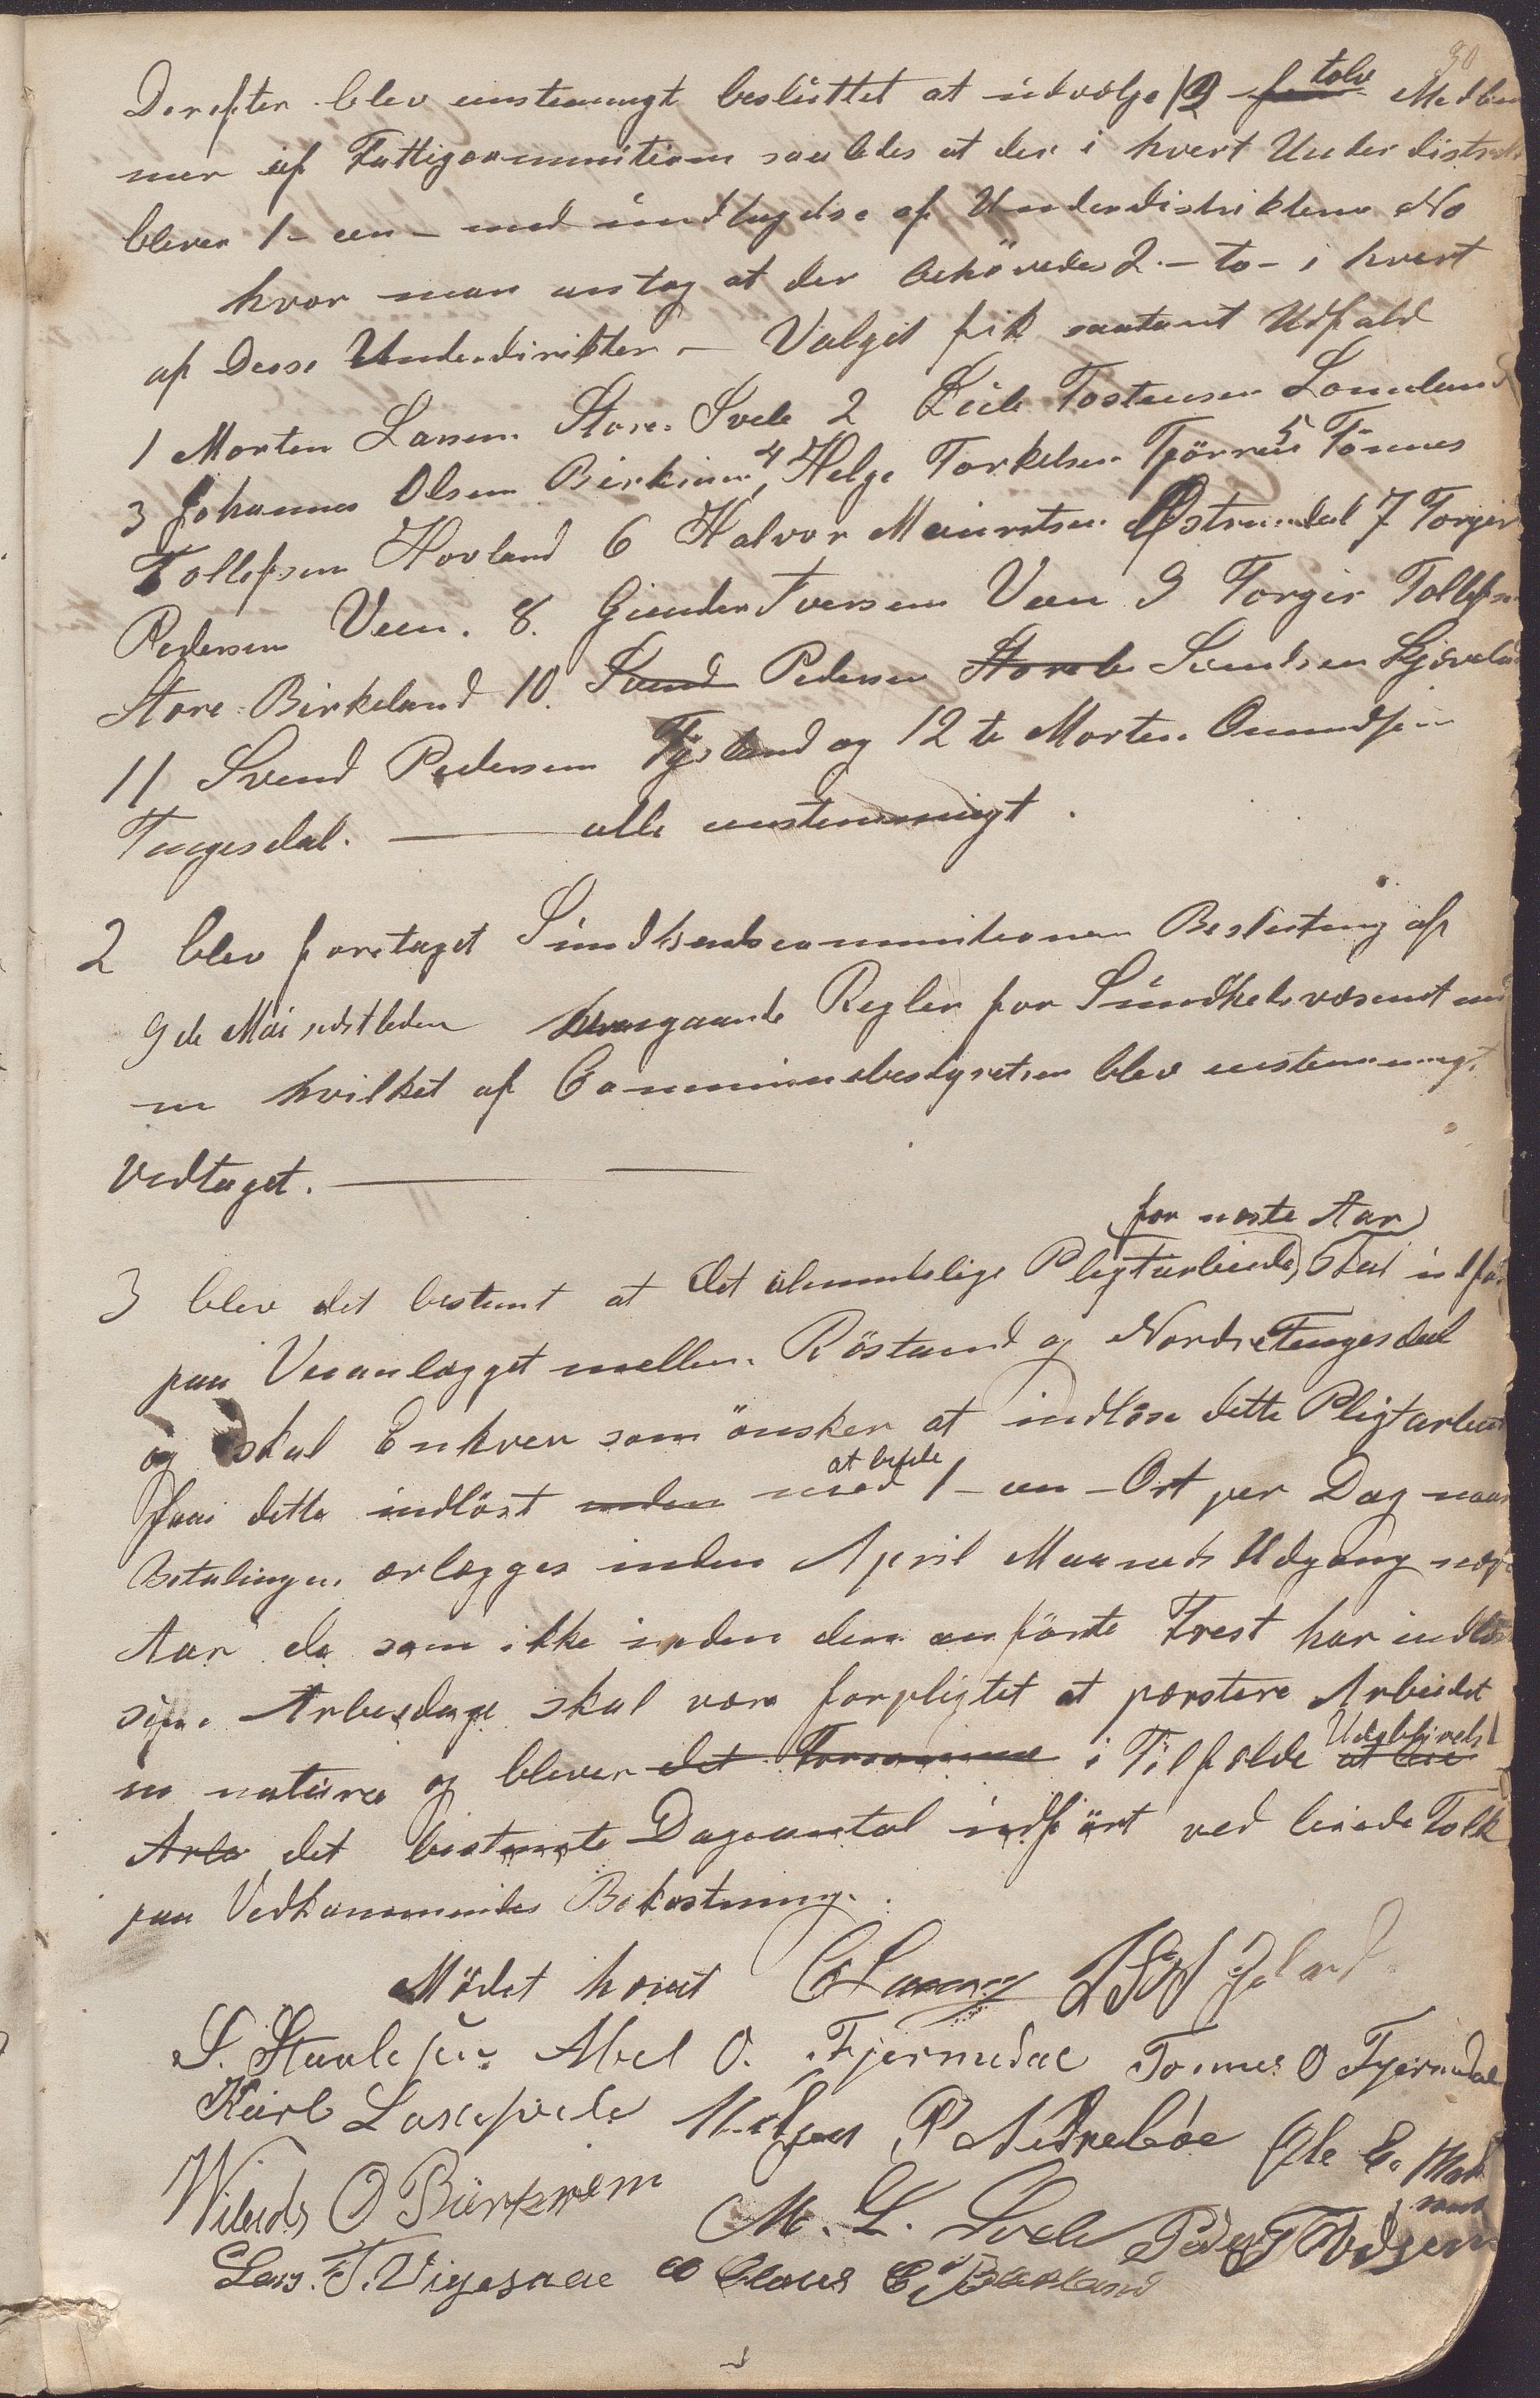 30
Derefter blev eenstemmigt besluttet at udvælge 12 tolv Medlem
mer af Fattigcommitionen saaledes at der i hvert Underdistrikt
bliver 1 - een - med undtagelse af Underdistrikterne No
hvor man antog at der behövedes 2 - to - i hvert
af Disse Underdirikter. - Valget fik saadant Udfald
1 Morten Larsen Store Svele 2 Tostensen Lomeland
3 Johannes Olsen Birkrem, 4 Helge Torkelsen Tjörn 5 Tönnes
Tollefsen Hovland 6 Halvor Mauritsen Østremdal 7 Torger
Pedersen Veen. 8. Gunder Iversen Veen 9 Torger Tollefsen
Store Birkeland 10. Svend Pedersen Storeb Svendsen Gjæveland
11 Svend Pedersen og 12te Morten Omundsen
Tengesdal. - alle eenstemmigt.
2 blev foretaget Sundhedscommitionen Beslutning af
9de Mai sidstleden Regler for Sundhedsvæsenet
hvilket af Communebestyrelsen blev eenstemmigt
vedtaget. -
for næste Aar
3 blev det bestemt at det almindelige Pligtarbeide, skal udför
paa Veianlægget mellem Röstand og Nordre Tengesdal
og skal Enhver som önsker at indlöse dette Pligtarbeid
at betale
faae dette indlöst inden med 1 - een - Ort per Dag naar
Betalingen erlægges inden April Maaneds Udgang næste
Aar de som ikke inden den anförte Frest har indlöst
sine Arbeisdage skal være forpligtet at præstere Arbeidet
Udeblivelse
in natura og bliver det Forsömme i Tilfælde at
Arb det bestemte Dageantal udfört ved leiede Folk
paa Vedkommendes Bekostning.
Mödet hævet
Abel O. Fjermedal Tönnes O Fjermedal
P Nedrebøe Ole E.
O Birkrem M. L. Svele
Lars. T. Vigesaae Claus